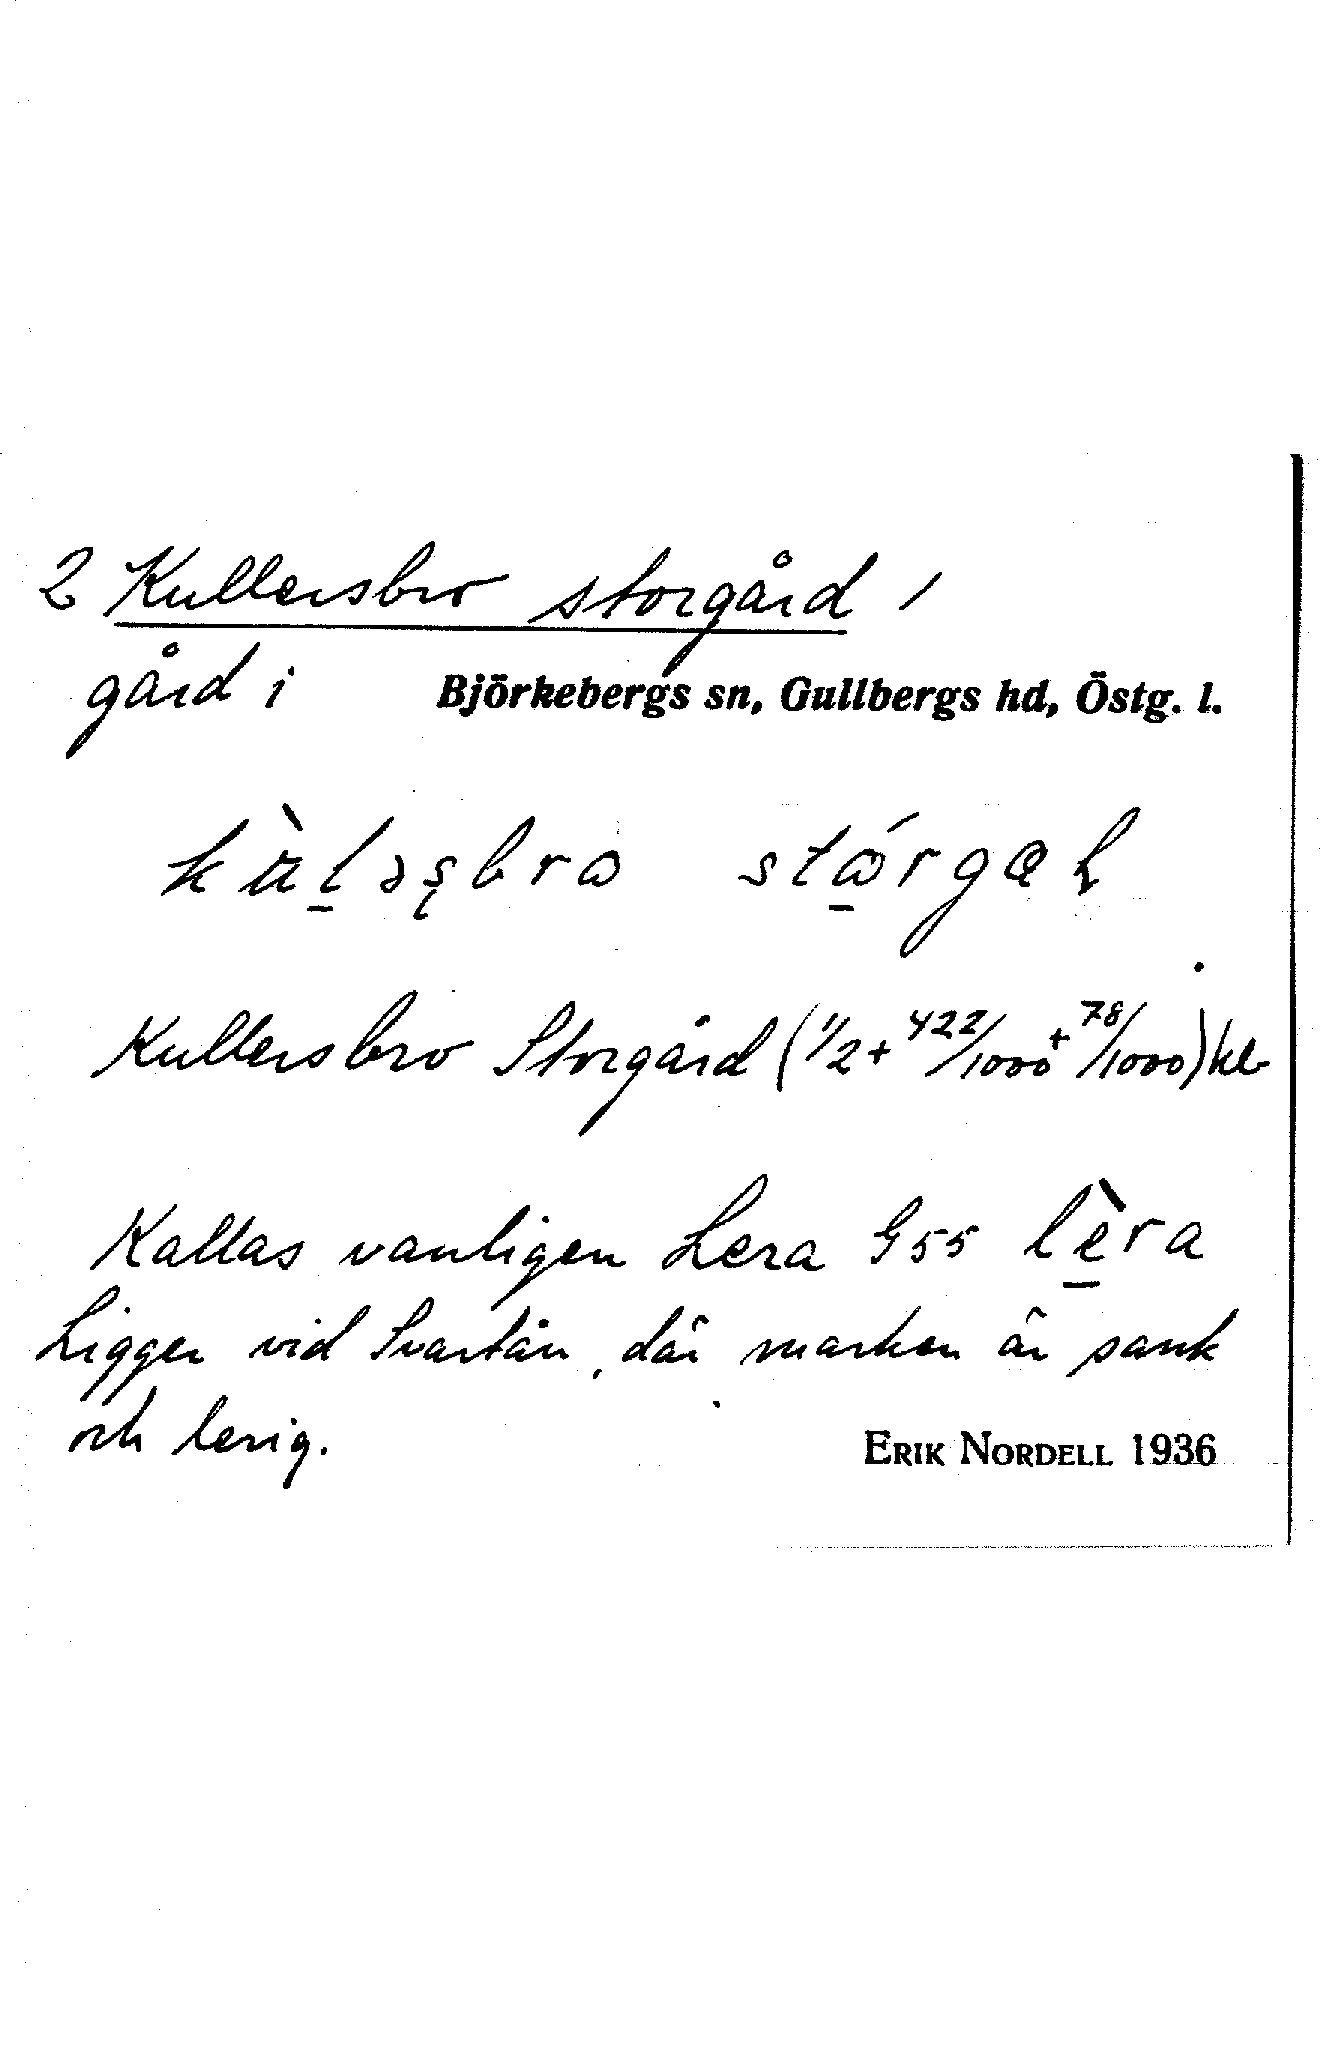 2 Kullersbro storgård /
gård i Björkebergs sn, Gullbergs hd, Östg. l.
Kullersbro Storgård (1/2 + 422/1000 + 78/1000) kl
Kallas vanligen Lera G55 lèra
Ligger vid Svartån, där marken är sank
och lerig.
ERIK NORDELL 1936